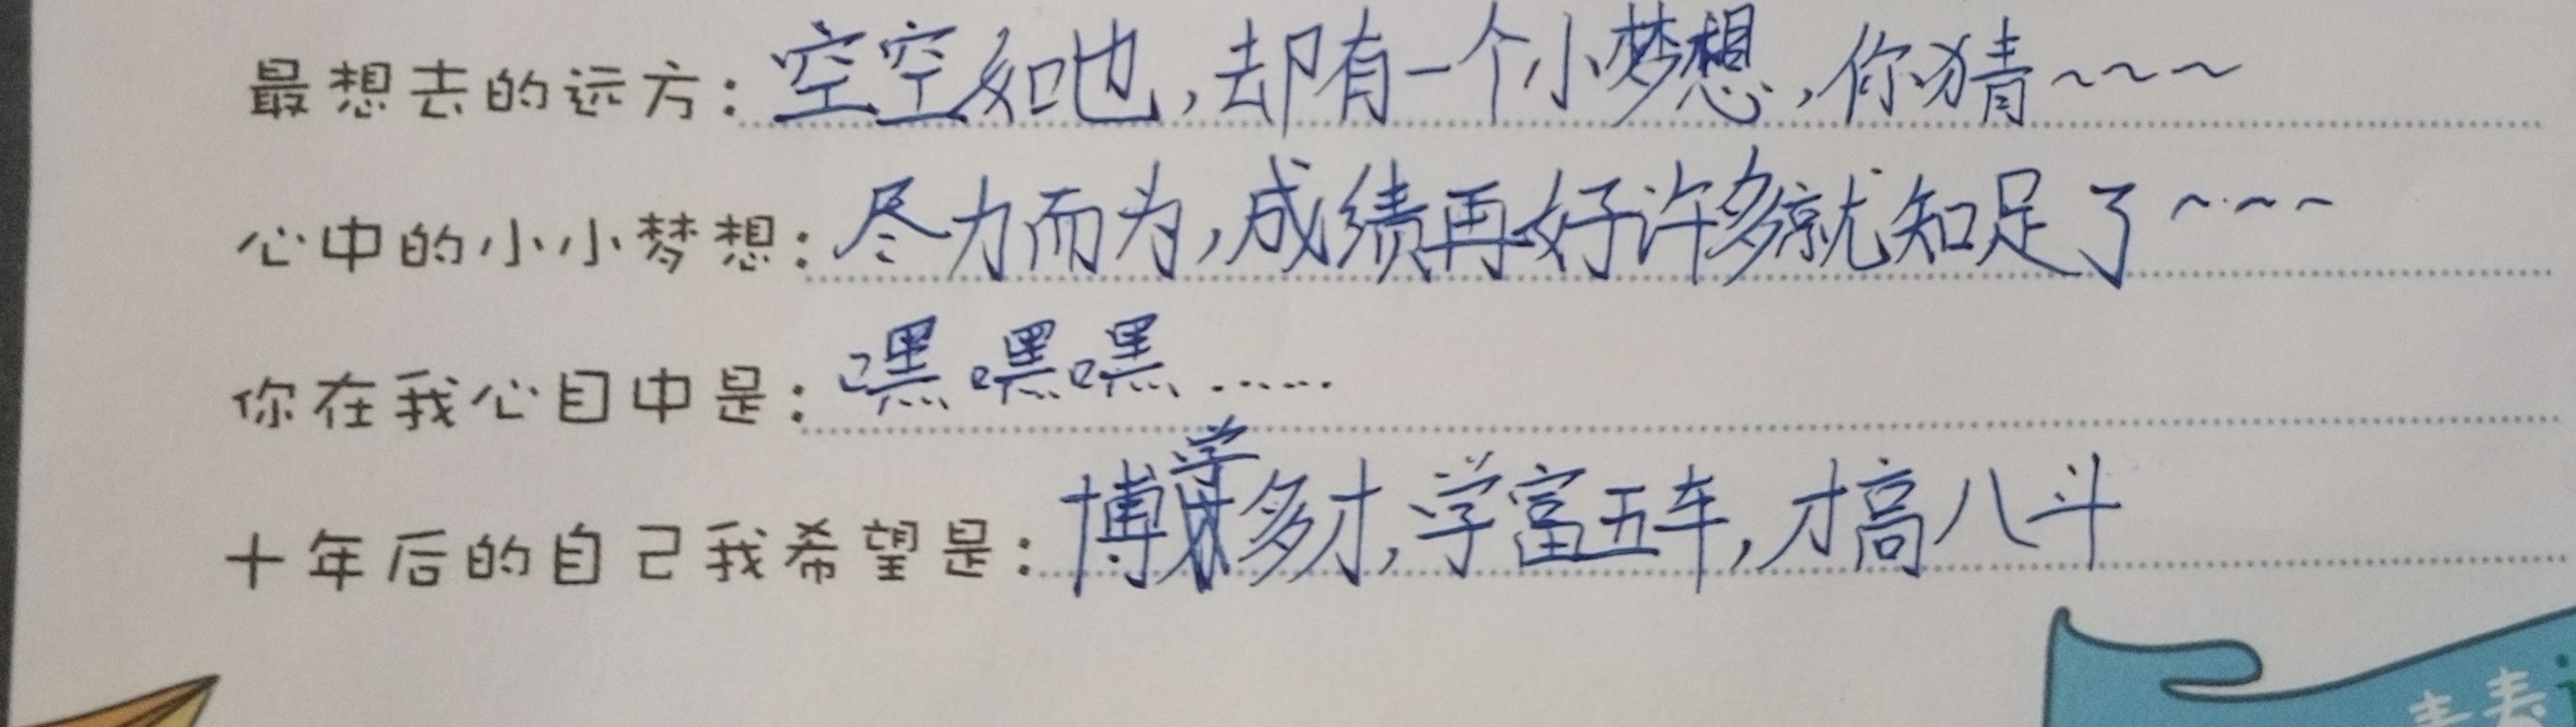 最想去的远方：空空如也，却有一个小梦想，你猜~~~
心中的小小梦想：尽力而为，成绩再好许多就知足了~~~
你在我心目中是：嘿嘿嘿……
十年后的自己我希望是：博学多才，学富五车，才高八斗